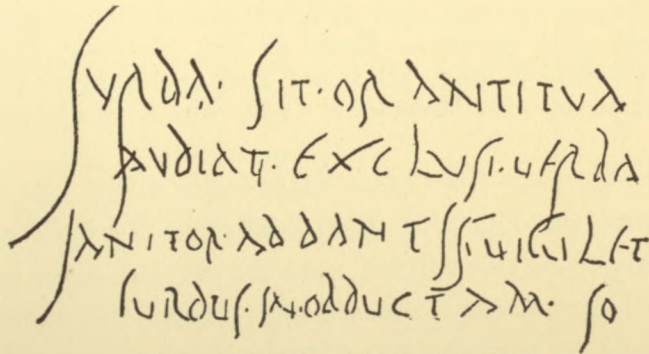 SVRDA· SIT· ORANTI TVA
AVDIAT· EXCLVSI· VERBA
IANITOR· AD DANTIS VIGILET
SVRDVS· IN· OBDVCTAM· SO